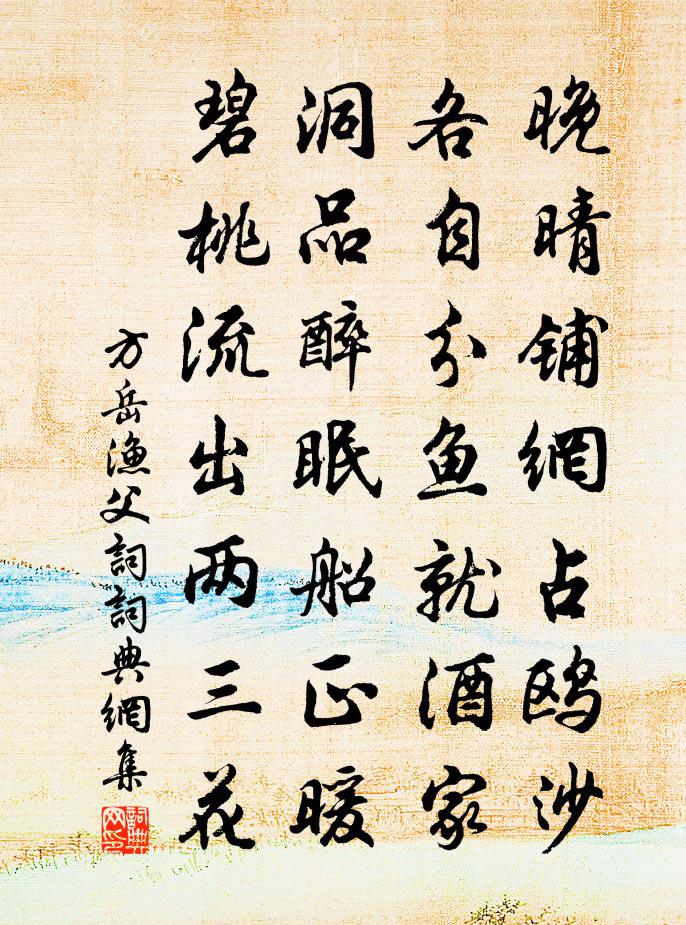 晚晴铺網占鸥沙
各自分鱼就酒家
洞品醉眠船正暖
碧桃流出两三花
方岳漁父詞詞典網集
詞典网印